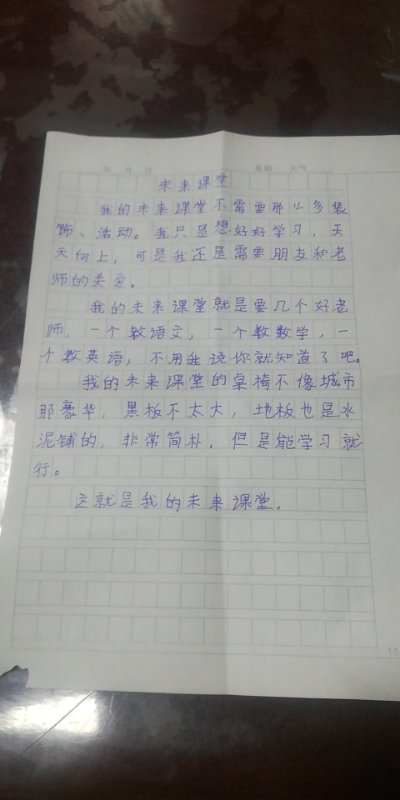 年 月 日 星期 天气
未来课堂
我的未来课堂不需要那么多装
饰、活动。我只是想好好学习，天
天向上，可是我还是需要朋友和老
师的关爱。
我的未来课堂就是要几个好老
师，一个教语文，一个教数学，一
个教英语，不用我说你就知道了吧。
我的未来课堂的桌椅不像城市
那豪华，黑板不太大，地板也是水
泥铺的，非常简朴，但是能学习就
行。
这就是我的未来课堂。